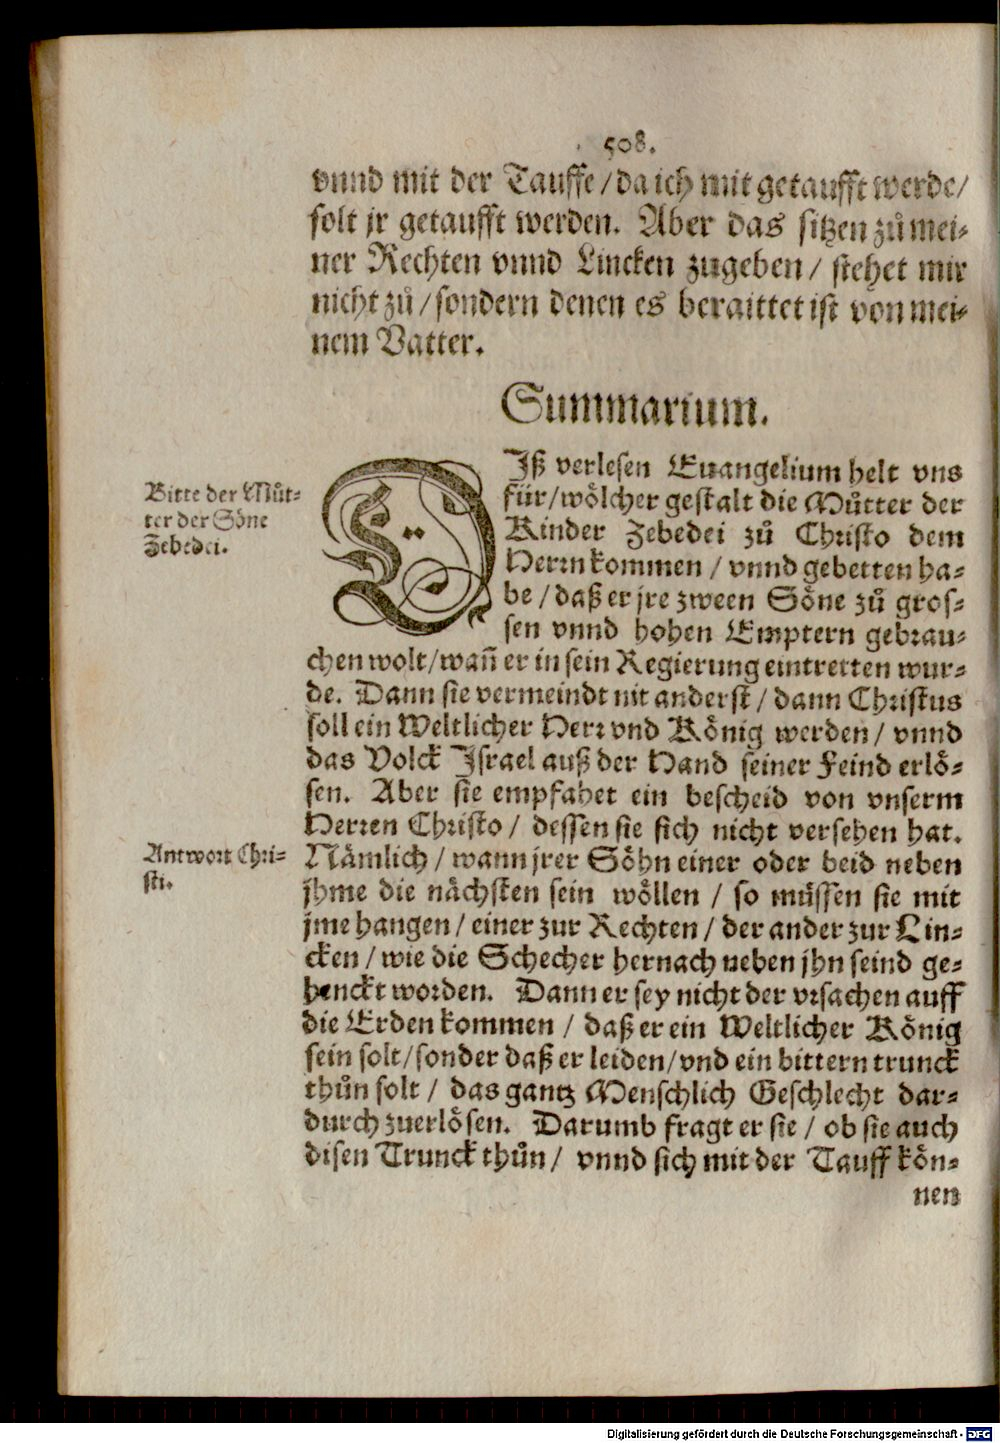 508.
vnnd mit der Tauffe / da ich mit getaufft werde /
solt jr getaufft werden. Aber das sitzen zů mei-
ner Rechten vnnd Lincken zugeben / stehet mir
nicht zů / sondern denen es beraittet ist von mei-
nem Vatter.
Summarium.
Bitte der Můt-
ter der Söne
Zebedei.
DIß verlesen Euangelium helt vns
für / wölcher gestalt die Můtter der
Kinder Zebedei zů Christo dem
Herrn kommen / vnnd gebetten ha-
be / daß er jre zween Söne zů gros-
sen vnnd hohen Emptern gebrau-
chen wolt / wañ er in sein Regierung eintretten wur-
de. Dann sie vermeindt nit anderst / dann Christus
soll ein Weltlicher Herr vnd König werden / vnnd
das Volck Israel auß der Hand seiner Feind erlö-
sen. Aber sie empfahet ein bescheid von vnserm
Herren Christo / dessen sie sich nicht versehen hat.
Antwort Chri-
sti.
Nämlich / wann jrer Söhn einer oder beid neben
jhme die nächsten sein wöllen / so müssen sie mit
jme hangen / einer zur Rechten / der ander zur Lin-
cken / wie die Schecher hernach neben jhn seind ge-
henckt worden. Dann er sey nicht der vrsachen auff
die Erden kommen / daß er ein Weltlicher König
sein solt / sonder daß er leiden / vnd ein bittern trunck
thůn solt / das gantz Menschlich Geschlecht dar-
durch zuerlösen. Darumb fragt er sie / ob sie auch
disen Trunck thůn / vnnd sich mit der Tauff kön-
nen
Digitalisierung gefördert durch die Deutsche Forschungsgemeinschaft - DFG